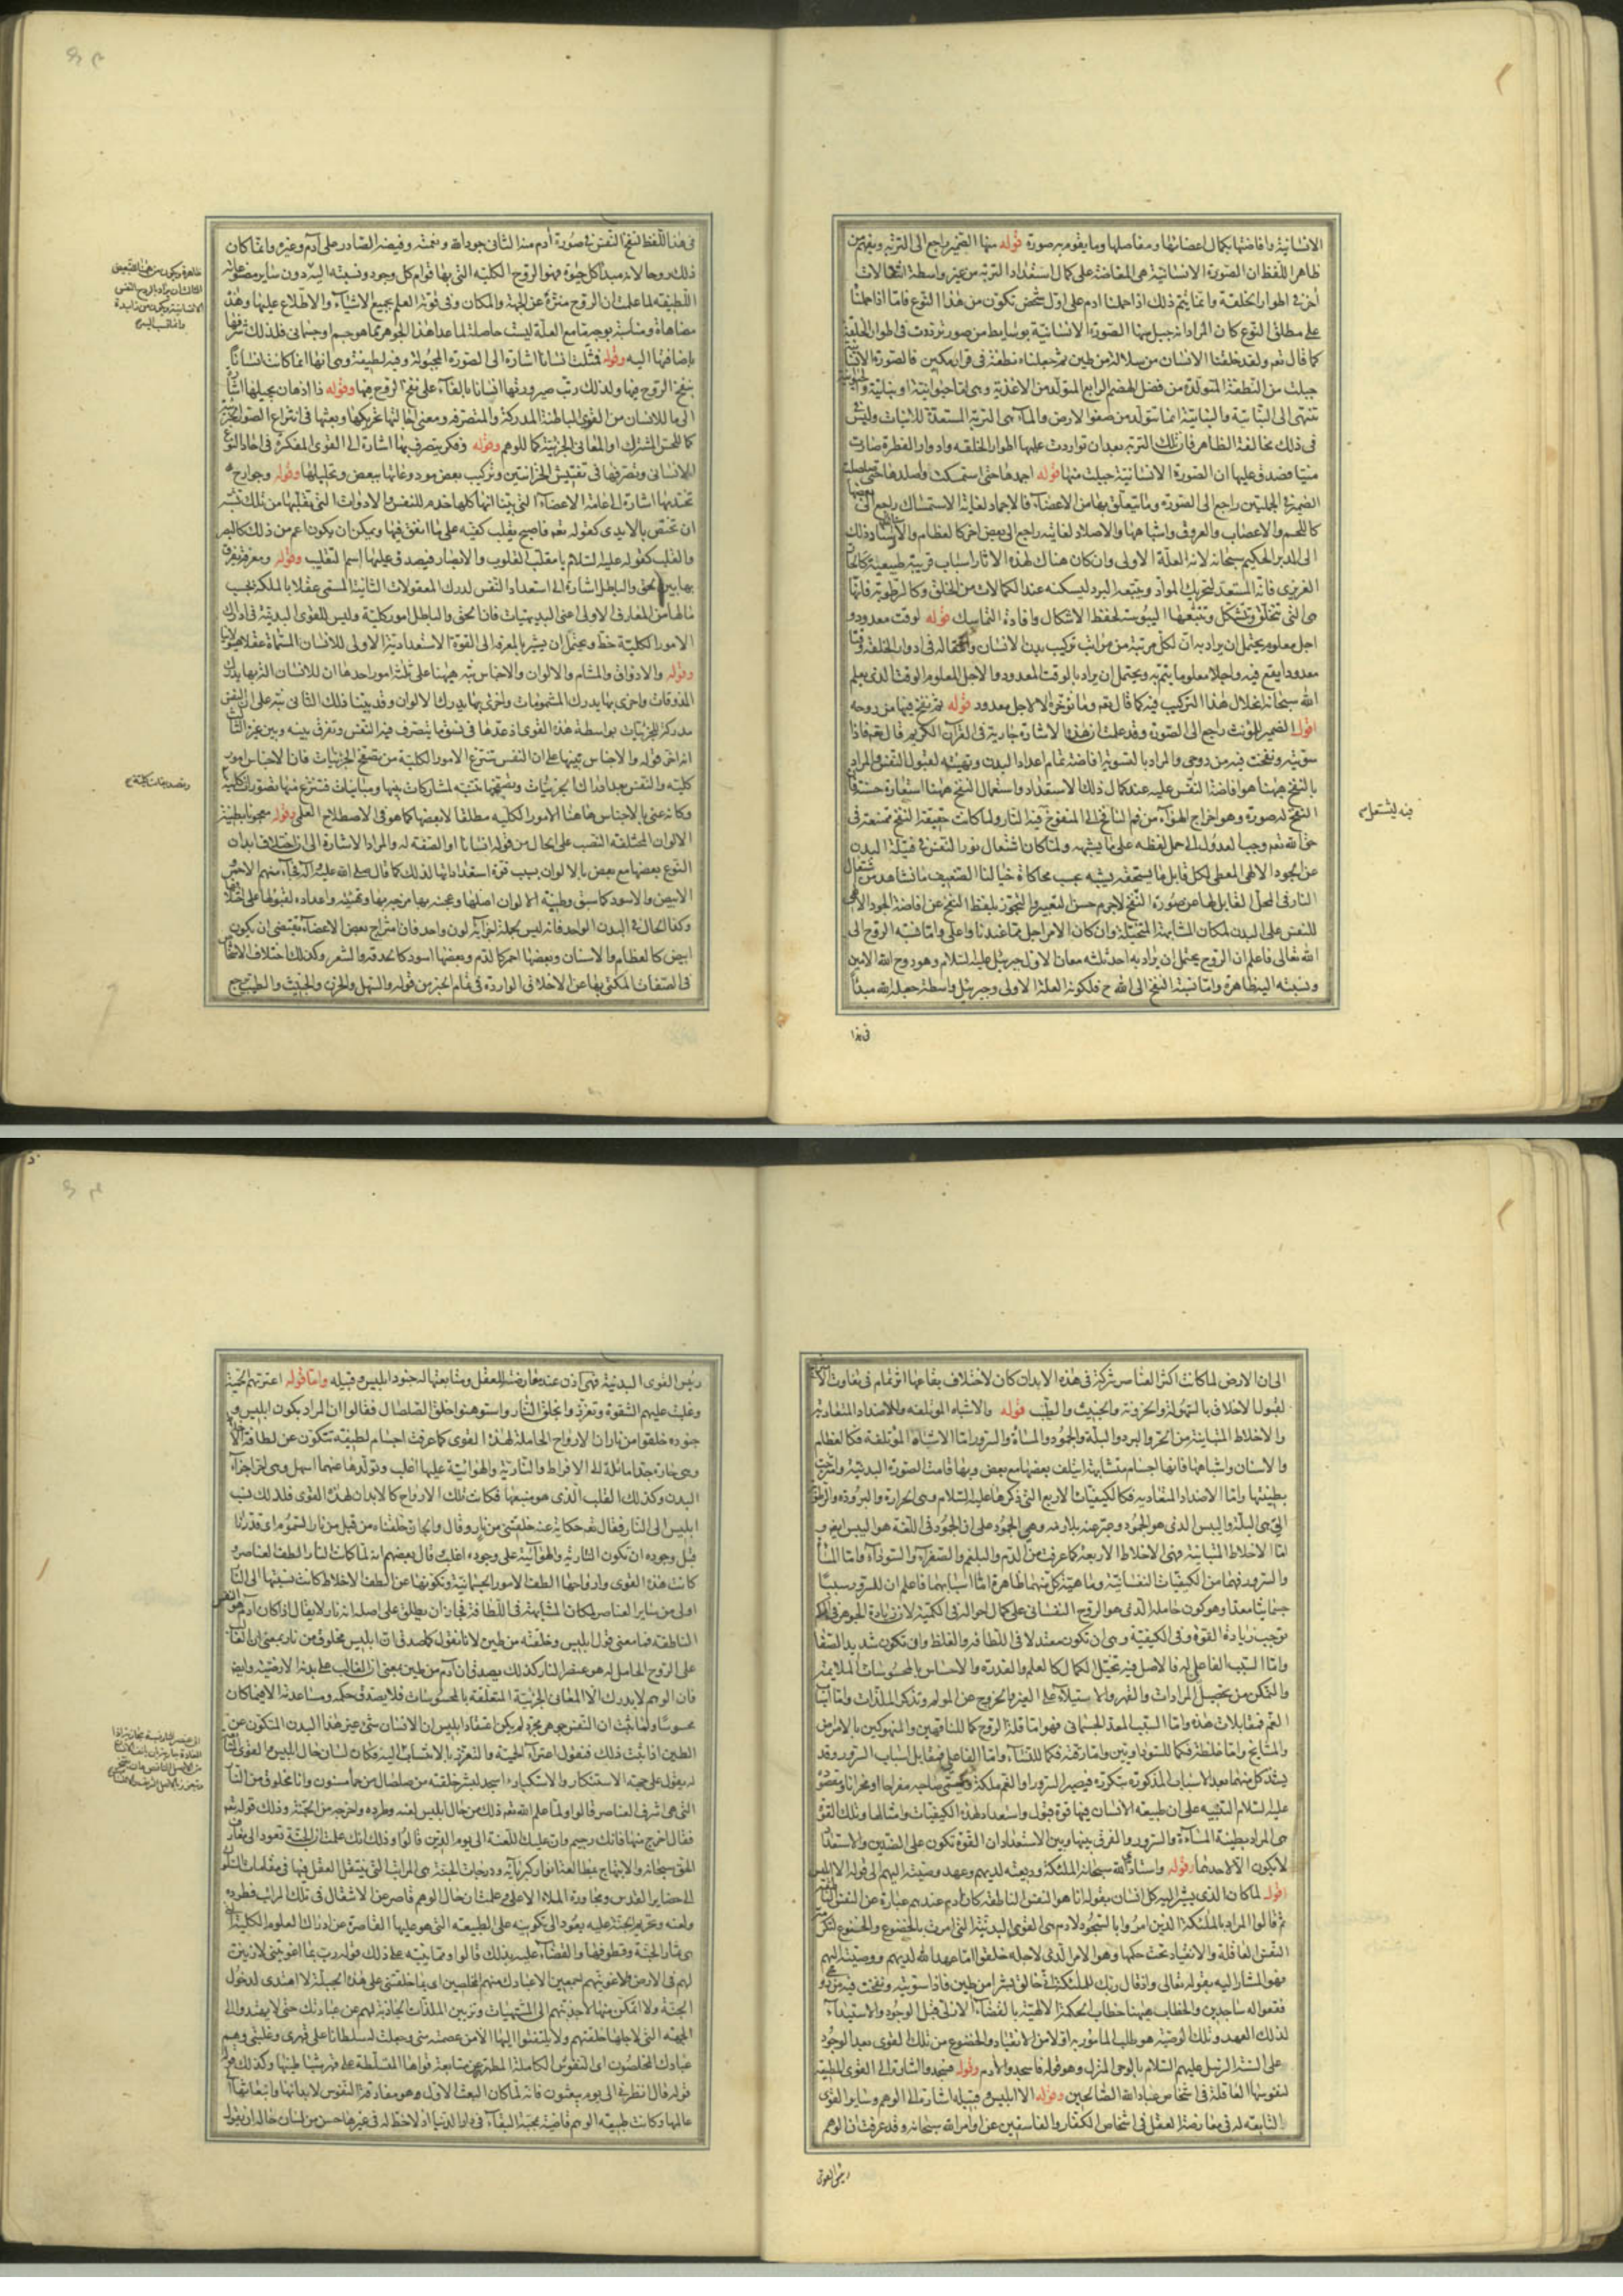 الانسانية وافاضتها بكمال اعضائها ومفاصلها وما يقوم به صورة قوله منها الضمير راجع الى التربة ويفهم من
ظاهر اللفظ ان الصورة الانسانية هى المفاضة على كمال استعداد التربة من غير واسطة انتقالات
أخر فى اطوار الخلقة وانما يتم ذلك اذا حملنا ادم على اول شخص تكوّن من هذا النوع فامّا اذا حملنا
على مطلق النوع كان المراد انه جبل منها الصورة الانسانية بوسايط من صور ترددت فى اطوار الخلقة
كما قال تعم ولقد خلقنا الانسان من سلالة من طين ثم جعلناه نطفة فى قرار مكين فالصورة الانسانية
جبلت من النطفة المتولدة من فضل الهضم الرابع المتولد من الاغذية وهى امّا حيوانية او نباتية والحيوانية
تنتهى الى النباتية والنباتية انما تتولد من صفو الارض والماء وهى التربة المستعدة للانبات وليس
فى ذلك مخالفة الظاهر فان تلك التربة بعد ان تواردت عليها اطوار الخلقة وادوار الفطرة صارت
منيا فصدق عليها ان الصورة الانسانية جبلت منها قوله اجمدها حتى استمسكت واصلدها حتى صلصلت
الضمير فى الجملتين راجع الى الصورة وما يتعلق بها من الاعضاء فالاجماد لغاية الاستمساك راجع الى بعضها
كاللحم والاعصاب والعروق واشباهها والاصلاد لغايته راجع الى بعض اخر كالعظام والاسنان واسناد ذلك
الى المدبر الحكيم سبحانه لانه العلة الاولى وان كان هناك لهذه الاثار اسباب قريبة طبيعية كالحار
الغريزى فانه المستعد لتحريك المواد ويتبعه البرد ليسكنه عند الكمالات من الخلق وكالرطوبة فانها
هى التى تتخلق وتتشكل وتتبعها اليبوسة لحفظ الاشكال وافادة التماسك قوله لوقت معدود و
اجل معلوم يحتمل ان يراد به ان لكل مرتبة من مراتب تركيب بدن الانسان وانتقاله فى ادوار الخلقة وقتا
معدودا يقع فيه واجلا معلوما يتم به ويحتمل ان يراد بالوقت المعدود والاجل المعلوم الوقت الذى يعلم
الله سبحانه انحلال هذا التركيب فيه كما قال تعم وما نؤخره الا لاجل معدود قوله ثم نفخ فيها من روحه
اقول الضمير المؤنث راجع الى الصورة وقد علمت ان هذه الاشارة جارية فى القرآن الكريم قال تعم فاذا
سوّيته ونفخت فيه من روحى والمراد بالتسوية افاضة تمام اعداد البدن وتهيئته لقبول النفس والمراد
بالنفخ ههنا هو افاضة النفس عليه عند كمال ذلك الاستعداد واستعمال النفخ ههنا استعارة حسنة فان
النفخ له صورة وهو اخراج الهواء من فم النافخ الى المنفوخ فيه النار ولما كانت حقيقة النفخ ممتنعة فى
حق الله تعم وجب العدول الى حمل لفظه على ما يشبهه ولمّا كان اشتعال نور النفس فى فتيلة البدن
عن الجود الالهى المعطى لكل قابل ما يستحقه يشبه بحسب محاكاة خيالنا الضعيف ما نشاهد من اشتعال
النار فى المحل القابل لها عن صورة النفخ لاجرم حسن التعبير والتجوّز بلفظ النفخ عن افاضة الجود الالهى
للنفس على البدن لمكان المشابهة المتخيّلة وان كان الامر اجل مما عندنا واعلى وامّا نسبة الروح الى
الله تعالى فاعلم ان الروح يحتمل ان يراد به احد ثلثة معان الاول جبرئيل عليه السلام وهو روح الله الامين
ونسبته اليه ظاهرة وامّا نسبة النفخ الى الله ح فلكونه العلة الاولى وجبرئيل واسطة جعله الله مبدأ
فى هذا
فيه ليشتعل م
فى هذا اللفظ لنفخ النفس فى صورة أدم منه الثانى جود الله ونعمته وفيضه الصّادر على أدم وغيره وانما كان
ذلك روحا لانه مبدأ كل حيوة فهو الروح الكلية التى بها قوام كل وجود ونسبته اليه دون ساير مصنوعاته
اللطيفة لما علمت ان الروح منزّه عن الجهة والمكان وفى قوته العلم بجميع الاشياء والاطلاع عليها وهذه
مضاهاة ومناسبة بوجه مّا مع العلة ليست حاصلة لما عدا هذا الجوهر مما هو جسم او جسمانى فلذلك شرّفها
باضافتها اليه وقوله فمثلت انسانا اشارة الى الصورة المجبولة وفيه لطيفة وهى انها انما كانت انسانا
بنفخ الروح فيها ولذلك رتب صيرورتها انسانا بالفاء على نفخ الروح فيها وقوله ذا اذهان يجيلها اشارة
الى ما للانسان من القوى الباطنة المدركة والمتصرفة ومعنى اجالتها تحريكها وبعثها فى انتزاع الصور الجزئية
كما للحس المشترك او المعانى الجزئية كما للوهم وقوله وفكر يتصرف بها اشارة الى القوى المفكرة فى احاد النوع
الانسانى وتصرفها فى تفتيش الخزانتين وتركيب بعض مودوعاتها ببعض وتحليلها وقوله وجوارح
تختدمها اشارة الى عامة الاعضاء التى بيّنا انها كلها خدم للنفس والادوات التى يقلبها من تلك
ان تختص بالايدى كقوله تعم فاصبح يقلب كفيه على ما انفق فيها ويمكن ان يكون اعم من ذلك كالبصر
والقلب كقوله عليه السّلام يا مقلب القلوب والابصار فيصدق عليهما اسم التقليب وقوله ومعرفة يفرق
بها بين الحق والباطل اشارة الى استعداد النفس لدرك المعقولات الثانية المسمى عقلا بالملكة بحسب
مالها من المعارف الاولى اعنى البديهيات فان الحق والباطل امور كلية وليس للقوى البدنية فى ادراك
الامور الكلية حظ ويحتمل ان يشير بالمعرفة الى القوة الاستعدادية الاولى للانسان المسماة عقلا هيولانيا
وقوله والاذواق والمشام والالوان والاجناس نبّه ههنا على ثلثة امور احدها ان للانسان الة بها يدرك
المذوقات واخرى بها يدرك المشمومات واخرى بها يدرك الالوان وقد بيّنا ذلك الثانى نبّه على ان النفس
مدركة للجزئيات بواسطة هذه القوى اذ عدّها فى نسق ما يتصرف فيه النفس وتفرق بينه وبين غيره الثالث
انه اخّر قوله والاجناس تنبيها على ان النفس تنتزع الامور الكلية من تصفح الجزئيات فان الاجناس امور
كلية والنفس بعد ادراك الجزئيات وتصفحها تتنبه لمشاركات بينها ومباينات فتنتزع منها تصورات كلية
وكانه عنى بالاجناس هاهنا الامور الكلية مطلقا لا بعضها كما هو فى الاصطلاح العلمى وقوله معجونا بطينة
الالوان المختلفة النصب على الحال من قوله انسانا او الصفة له والمراد الاشارة الى ان اختلاف ابدان
النوع بعضها مع بعض بالالوان بسبب قوة استعداداتها لذلك كما قال صلى الله عليه واله فجاء منهم الاحمر
الابيض والاسود كما سبق وطينة الالوان اصلها وعجنه بها مزجه بها وتهيئته واعداده لقبولها على اختلافها
وكذا الحال فى البدن الواحد فانه ليس بجملة اجزائه لون واحد فان امتزاج بعض الاعضاء يقتضى ان يكون
ابيض كالعظام والاسنان وبعضها احمر كالدم وبعضها اسود كالحدقة والشعر وكذلك اختلاف الاشخاص
فى الصفات المكنى بها عن الاخلاق الواردة فى تمام الخبر من قوله والسهل والحزن والخبيث والطيّب ح
وتصديقات كلية ح
الى ان الارض لما كانت اكثر العناصر شركة فى هذه الابدان كان لاختلاف بقاعها اثر تمام فى تفاوت الامتزاج
لقبول الاخلاق بالسهولة والحزونة والخبيث والطيّب قوله والاشباه المؤتلفة والاضداد المتعادية
والاخلاط المتباينة من الحرّ والبرد والبلّة والجمود والمساءة والسرور امّا الاشباه المؤتلفة فكالعظام
والاسنان واشباهها فانها اجسام متشابهة ايتلف بعضها مع بعض وبها قامت الصورة البدنية وامتزجت
بطينتها وامّا الاضداد المتعادية فكالكيفيات الاربع التى ذكرها عليه السّلام وهى الحرارة والبرودة والرطوبة
التى هى البلّة واليبس الذى هو الجمود وعبّر عنه بلازمه وهو الجمود على ان الجمود فى اللغة هو اليبس ايضا و
امّا الاخلاط المتباينة فهى الاخلاط الاربعة كما عرفت من الدم والبلغم والصفراء والسوداء وامّا المساءة
والسرور فهما من الكيفيات النفسانية وماهية كل منهما ظاهرة امّا اسبابهما فاعلم ان للسرور سببا
جسمانيا معدا وهو كون حامله الذى هو الروح النفسانى على كمال احواله فى الكمّية لان زيادة الجوهر فى الكم
توجب زيادة القوة وفى الكيفية وهى ان تكون معتدلا فى اللطافة والغلظ وان تكون شديد الصفا
وامّا السبب الفاعلى له فالاصل فيه تخيّل الكمال كالعلم والقدرة والاحساس بالمحسوسات الملايمة
والتمكن من تحصيل المرادات والقهر والاستيلاء على الغير والخروج عن المولم وتذكر الملذّات وامّا اسباب
الغم فمقابلات هذه وامّا السبب المعد الجسمانى فهو امّا قلة الروح كما للناقهين والمنهوكين بالامراض
والمشايخ وامّا غلظته فكما للسوداويين وامّا رقته فكما للنساء وامّا الفاعلى فمقابل اسباب السرور وقد
يشتد كل منهما بعد الاسباب المذكورة بتكرّره فيصير السرور او الغم ملكة ويسمى صاحبه مفراحا او محزانا ومقصوده
عليه السلام التنبيه على ان طبيعة الانسان فيها قوة قبول واستعداد لهذه الكيفيات وامثالها وتلك القوة
هى المراد بطينة المساءة والسرور والفرق بينها وبين الاستعداد ان القوة تكون على الضدين والاستعداد
لا يكون الا لاحدهما وقوله واستأدى الله سبحانه الملئكة وديعته لديهم وعهد وصيته اليهم الى قوله الا ابليس
اقول لما كان الذى يشير اليه كل انسان بقوله انا هو النفس الناطقة كان أدم عندهم عبارة عن النفس الناطقة
ثم قالوا المراد بالملئكة الذين امروا بالسجود لادم هى القوى البدنية التى امرت بالخضوع والخشوع لتكرمة
النفس العاقلة والانقياد تحت حكمها وهو الامر الذى لاجله خلقوا امّا عهد الله لديهم ووصيته اليهم
فهو المشار اليه بقوله تعالى واذ قال ربك للملئكة انى خالق بشرا من طين فاذا سوّيته ونفخت فيه من روحى
فقعوا له ساجدين والخطاب ههنا خطاب الحكمة الالهية بالقضاء الازلى قبل الوجود والاستيداء
لذلك العهد وتلك الوصية هو طلب المامور به اولا من الانقياد والخضوع من تلك القوى بعد الوجود
على السنة الرسل عليهم السّلام بالوحى المنزل وهو قوله فاسجدوا لادم وقوله فسجدوا اشارة الى القوى المطيعة
لنفوسها العاقلة فى اشخاص عباد الله الصالحين وقوله الا ابليس وقبيله اشارة الى الوهم وساير القوى
التابعة له فى معارضة العقل فى اشخاص الكفّار والفاسقين عن اوامر الله سبحانه وقد عرفت ان الوهم
رئيس القوى
رئيس القوى البدنية فهى اذن عند معارضته للعقل ومتابعتها له جنود ابليس وقبيله وامّا قوله اعترتهم الحميّة
وغلبت عليهم الشقوة وتعزز وا بخلقة النّار واستوهنوا خلق الصلصال فقالوا ان المراد بكون ابليس و
جنوده خلقوا من نار ان الارواح الحاملة لهذه القوى كما عرفت اجسام لطيفة تتكون عن لطافة الاخلاط
وهى حارة جدا مائلة الى الافراط والنارية والهوائية عليها اغلب وتولدها عنهما اسهل وهى احر اجزاء
البدن وكذلك القلب الذى هو منبعها فكانت تلك الارواح كالابدان لهذه القوى فلذلك نسب
ابليس الى النار فقال تعم حكاية عنه خلقتنى من نار وقال والجان خلقناه من قبل من نار السموم اى قدّرنا
قبل وجوده ان تكون النارية والهوائية على وجوده اغلب وقال بعضهم انه لمّا كانت النار الطف العناصر و
كانت هذه القوى وارواحها الطف الامور الجسمانية وتكونها عن الطف الاخلاط كانت نسبتها الى النار
اولى من ساير العناصر لمكان المشابهة فى اللطافة فجاز ان يطلق على اصله انه نار لا يقال اذا كان أدم هو النفس
الناطقة فما معنى قول ابليس وخلقته من طين لانا نقول كما صدق ان ابليس مخلوق من نار بمعنى ان الغالب
على الروح الحامل له هو عنصر النار كذلك يصدق ان آدم من طين بمعنى ان الغالب على بدنه الارضية وايضا
فان الوهم لا يدرك الا المعانى الجزئية المتعلقة بالمحسوسات فلا يصدق حكمه ومساعدته الا فيما كان
محسوسا ولما ثبت ان النفس جوهر مجرد لم يكن اعتقاد ابليس ان الانسان شىء غير هذا البدن المتكون عن
الطين اذا ثبت ذلك فنقول اعتراء الحمية والتعزز بالانتساب اليه فكان لسان حال ابليس والقوى التابعة
له يقول على جهة الاستنكار والاستكبار ءاسجد لبشر خلقته من صلصال من حمأ مسنون وانا مخلوق من النار
التى هى اشرف العناصر قالوا ولما علم الله تعم ذلك من حال ابليس لعنه وطرده واخرجه من الجنة وذلك قوله تعم
فقال اخرج منها فانك رجيم وان عليك اللعنة الى يوم الدين قالوا وذلك انك علمت ان الجنة تعود الى معارف
الحق سبحانه والابتهاج بمطالعة انوار كبريائه ودرجات الجنة هى المراتب التى ينتقل العقل فيها فى مقامات السلوك
الى حضاير القدس ومجاورة الملاء الاعلى وعلمت ان حال الوهم قاصر عن الانتقال فى تلك المراتب فطرده
ولعنه وتحريم الجنة عليه يعود الى تكوينه على الطبيعة التى هو عليها القاصرة عن ادراك العلوم الكلية التى
هى ثمار الجنة وقطوفها والقضاء عليه بذلك قالوا ومما ينبّه على ذلك قوله رب بما اغويتنى لازينن
لهم فى الارض ولاغوينهم اجمعين الا عبادك منهم المخلصين اى بما خلقتنى على هذه الجبلّة لا اهتدى لدخول
الجنة ولا اتمكن منها لاجذبنهم الى المشتهيات وتزيين الملذّات الجاذبة لهم عن عبادتك حتى لا يهتدوا الى
الجهة التى لاجلها خلقتهم ولا يلتفتوا اليها الا من عصمته منى وجعلت له سلطانا على قهرى وغلبتى وهم
عبادك المخلصون اى النفوس الكاملة المطهّرة عن متابعة قواها المسلّطة على قهر شياطينها وكذلك هو
قوله قال انظرنى الى يوم يبعثون فانه لمّا كان البعث الاول وهو مفارقة النفوس لابدانها وانبعاثها الى
عالمها وكانت طبيعة الوهم قاضية بمحبة البقاء فى دار الدنيا اذ لاحظ له فى غيرها حسن من لسان حاله ان يقول